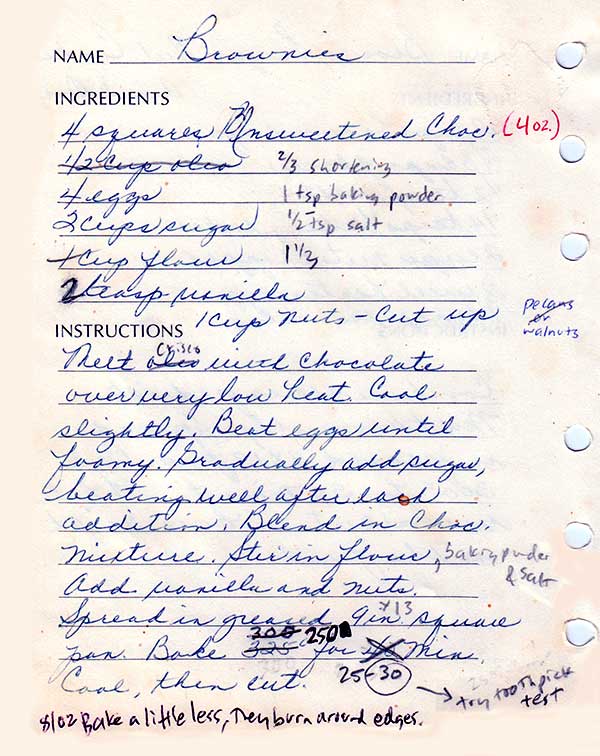 NAME Brownies
INGREDIENTS
4 squares Unsweetened Choc. (4 oz.)
1/2 Cup oleo 2/3 shortening
4 eggs 1 tsp baking powder
2 Cups sugar 1/2 tsp salt
1 Cup flour 1 1/2
2 teasp vanilla
1 Cup nuts - Cut up pecans or walnuts
INSTRUCTIONS
Crisco
Melt oleo with Chocolate
over very low heat. Cool
slightly. Beat eggs until
foamy. Gradually add sugar,
beating well after each
addition. Blend in Choc.
Mixture. Stir in flour, baking powder & salt
Add vanilla and nuts.
Spread in greased 9 in. x13 square
300 250
pan. Bake 325° for Min.
25-30
Cool, then cut. try toothpick test
8/02 Bake a little less, They burn around edges.